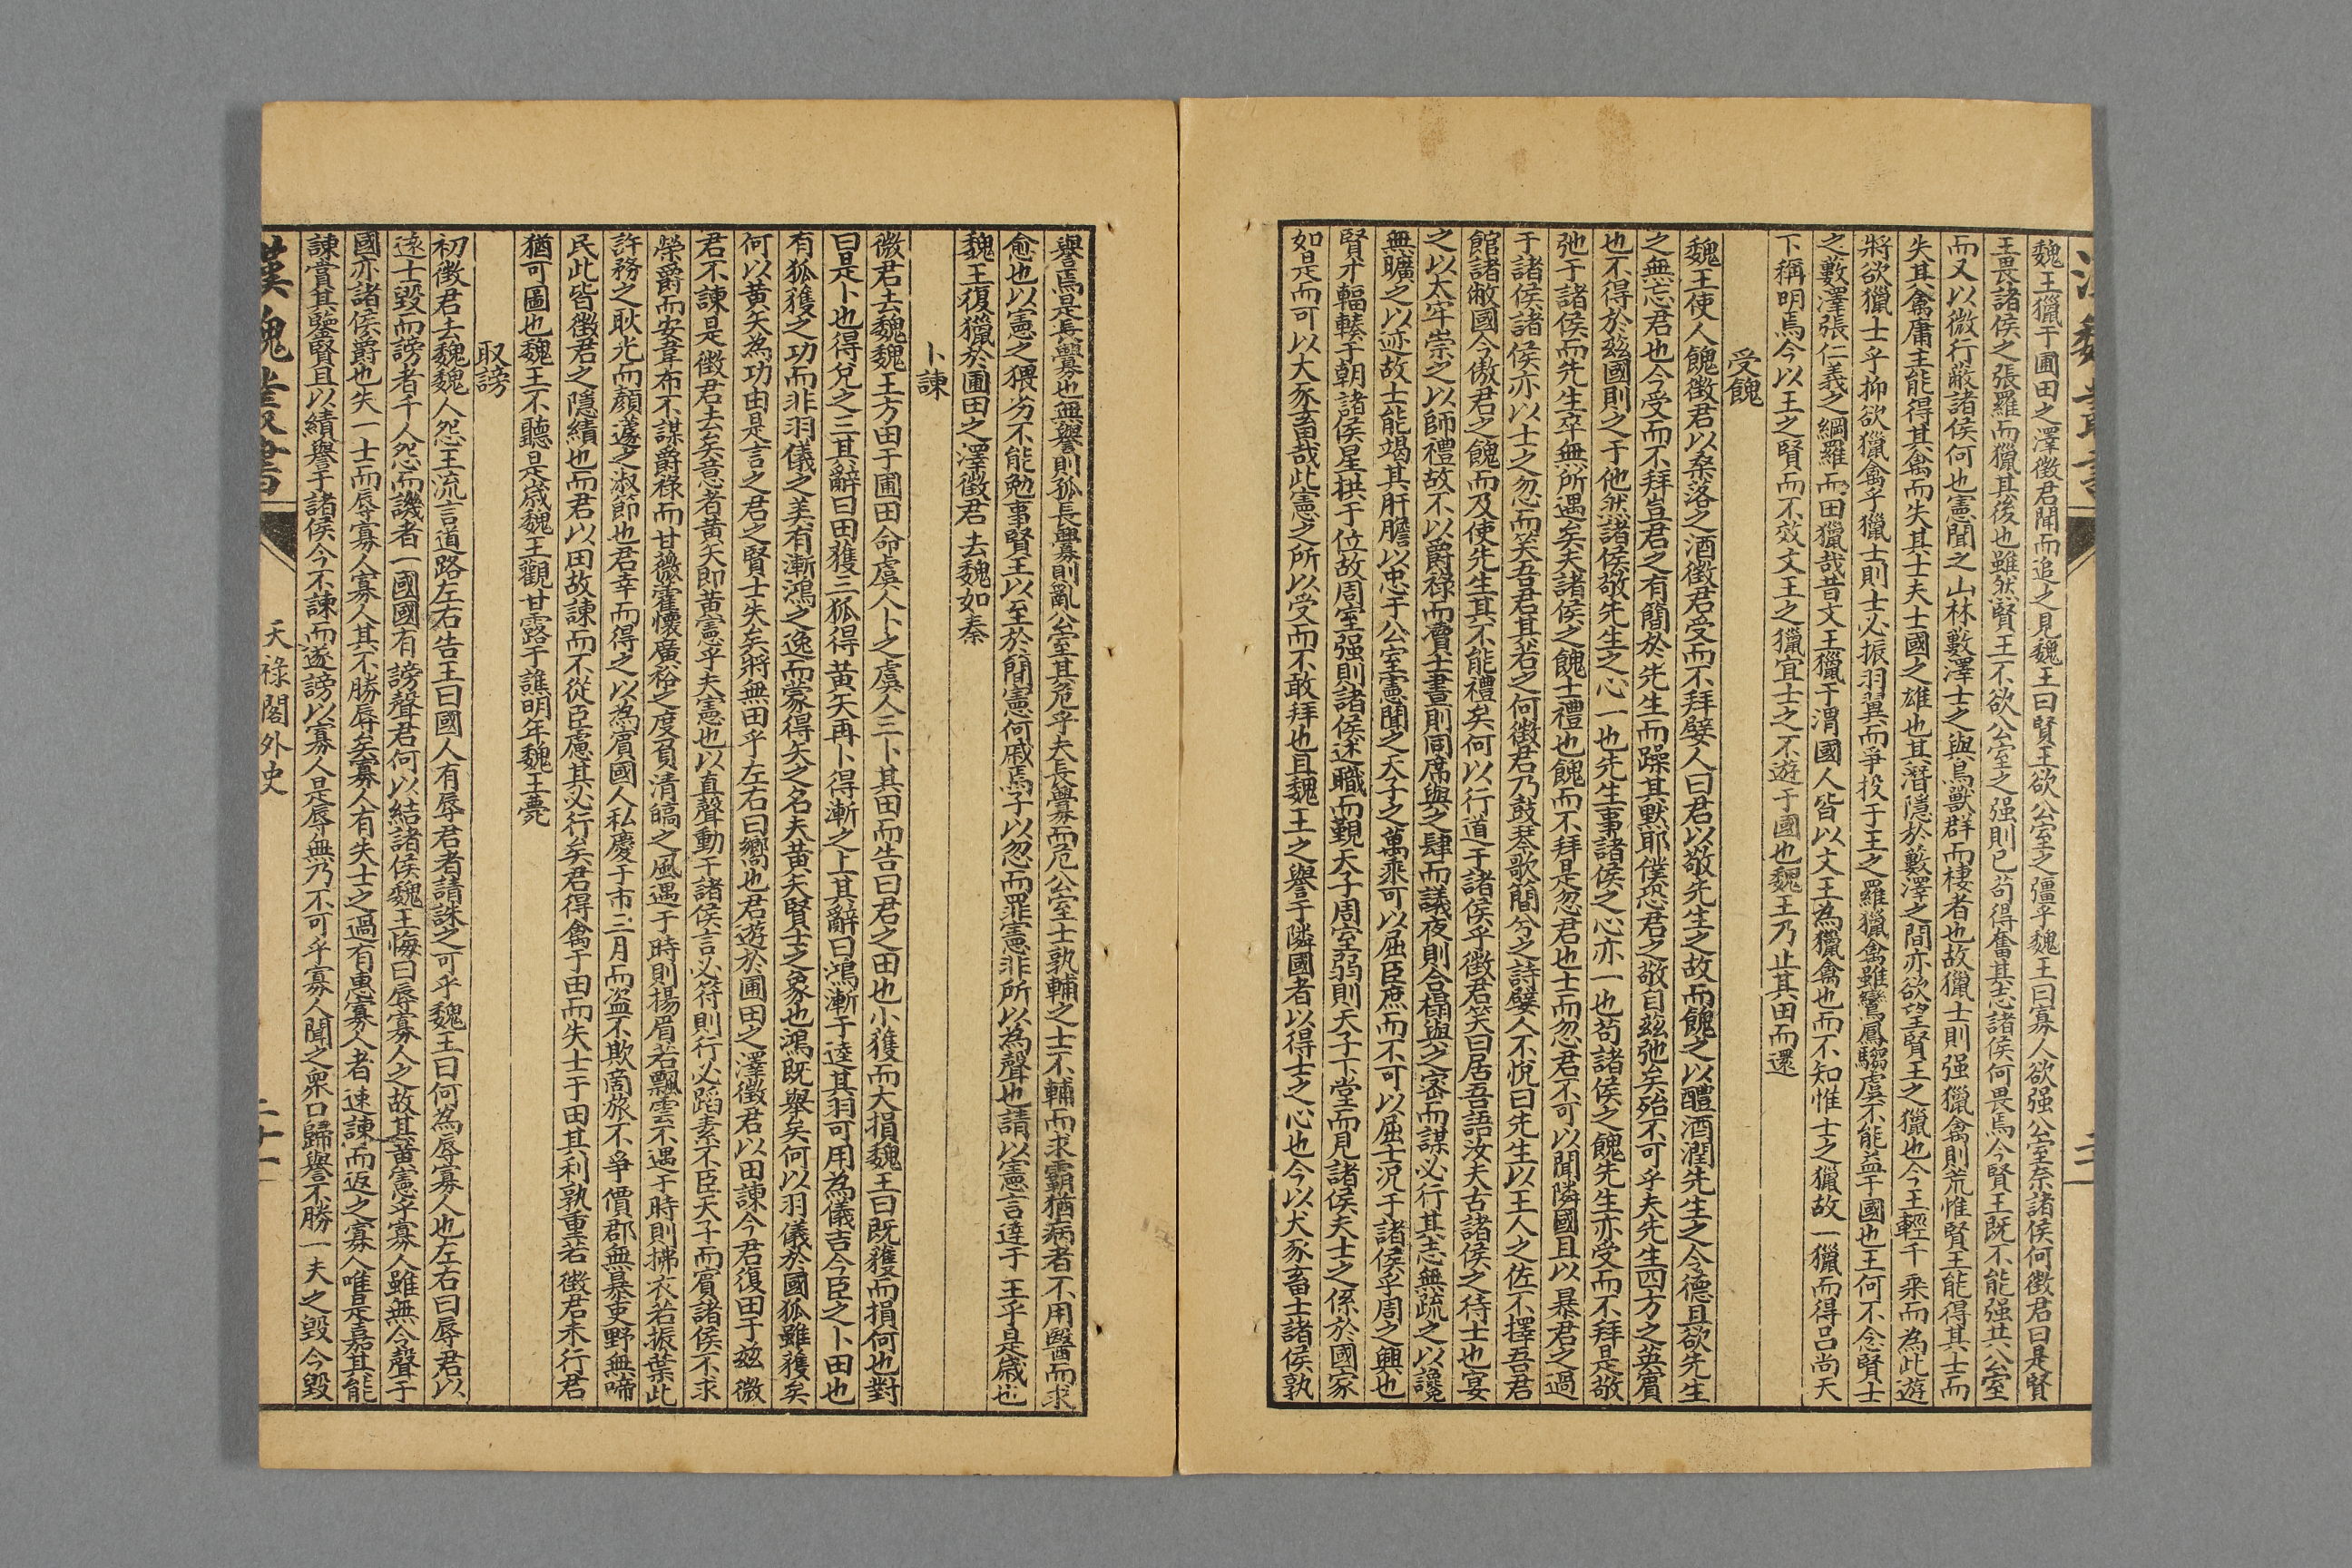 魏王獵于圃田之澤徵君聞而追之見魏王曰賢王欲公室之彊乎魏王曰寡人欲强公室奈諸侯何徵君曰是賢
王畏諸侯之張羅而獵其後也雖然賢王不欲公室之强則已苟得奮其志諸侯何畏焉今賢王既不能强其公室
而又以微行蔽諸侯何也憲聞之山林藪澤士之與鳥獸群而棲者也故獵士則强獵禽則荒惟賢王能得其士而
失其禽庸主能得其禽而失其士夫士國之雄也其潛隱於藪澤之間亦欲望賢王之獵也今王輕千乘而為此遊
將欲獵士乎抑欲獵禽乎獵士則士必振羽翼而爭投于王之羅獵禽雖鸞鳳騶虞不能益于國也王何不念賢士
之藪澤張仁義之綱羅而田獵哉昔文王獵于渭國人皆以文王為獵禽也而不知惟士之獵故一獵而得呂尚天
下稱明焉今以王之賢而不效文王之獵宜士之不遊于國也魏王乃止其田而還
受餽
魏王使人餽徵君以桑落之酒徵君受而不拜嬖人曰君以敬先生之故而餽之以醴酒潤先生之令德且欲先生
之無忘君也今受而不拜豈君之有簡於先生而躁其默耶僕恐君之敬自茲弛矣殆不可乎夫先生四方之英賓
也不得於茲國則之于他然諸侯敬先生之心一也先生事諸侯之心亦一也苟諸侯之餽先生亦受而不拜是敬
弛于諸侯而先生卒無所遇矣夫諸侯之餽士禮也餽而不拜是忽君也士而忽君不可以聞隣國且以暴君之過
于諸侯諸侯亦以士之忽而笑吾君其若之何徵君乃鼓琴歌簡兮之詩嬖人不悅曰先生以王人之佐不擇吾君
館諸敝國今傲君之餽而及使先生其不能禮矣何以行道于諸侯乎徵君笑曰居吾語汝夫古諸侯之待士也宴
之以太牢崇之以師禮故不以爵祿而賣士晝則同席與之肆而議夜則合榻與之密而謀必行其志無疏之以讒
無曠之以迹故士能竭其肝膽以忠于公室憲聞之天子之萬乘可以屈臣庶而不可以屈士況于諸侯乎周之興也
賢才輻輳于朝諸侯星拱于位故周室强則諸侯述職而覲天子周室弱則天子下堂而見諸侯夫士之係於國家
如是而可以犬豕畜哉此憲之所以受而不敢拜也且魏王之譽于隣國者以得士之心也今以犬豕畜士諸侯孰
譽焉是長釁也無譽則孤長釁則亂公室其危乎夫長釁而危公室士孰輔之士不輔而求霸猶病者不用醫而求
愈也以憲之猥劣不能勉事賢王以至於簡憲何戚焉子以忽而罪憲非所以為聲也請以憲言達于王乎是歲也
魏王復獵於圃田之澤徵君去魏如秦
卜諫
徵君去魏魏王方田于圃田命虞人卜之虞人三卜其田而告曰君之田也小獲而大損魏王曰既獲而損何也對
曰是卜也得兌之三其辭曰田獲三狐得黃矢再卜得漸之上其辭曰鴻漸于逵其羽可用為儀吉今臣之卜田也
有狐獲之功而非羽儀之美有漸鴻之逸而蒙得矢之名夫黃矢賢士之象也鴻既舉矣何以羽儀於國狐雖獲矣
何以黃矢為功由是言之君之賢士失矣將無田乎左右曰嚮也君遊於圃田之澤徵君以田諫今君復田于茲徵
君不諫是徵君去矣意者黃矢即黃憲乎夫憲也以直聲動于諸侯言必符則行必蹈素不臣天子而賓諸侯不求
榮爵而安韋布不謀爵祿而甘薇藿懷廣裕之度負清皜之風遇于時則揚眉若飄雲不遇于時則拂衣若振葉此
許務之耿光而顏蘧之淑節也君幸而得之以為賓國人私慶于市三月而盜不欺商旅不爭價郡無暴吏野無啼
民此皆徵君之隱績也而君以田故諫而不從臣慮其必行矣君得禽于田而失士于田其利孰重若徵君未行君
猶可圖也魏王不聽是歲魏王觀甘露于譙明年魏王薨
取謗
初徵君去魏魏人怨王流言道路左右告王曰國人有辱君者請誅之可乎魏王曰何為辱寡人也左右曰辱君以
遠士毀而謗者千人怨而譏者一國國有謗聲君何以結諸侯魏王悔曰辱寡人之故其黃憲乎寡人雖無令聲于
國亦諸侯爵也失一士而辱寡人寡人其不勝辱矣寡人有失士之過有惠寡人者速諫而返之寡人唯是嘉其能
諫賞其鑒賢且以績譽于諸侯今不諫而遂謗以寡人是辱無乃不可乎寡人聞之衆口歸譽不勝一夫之毀今毀
漢魏叢書
天祿閣外史
二十一